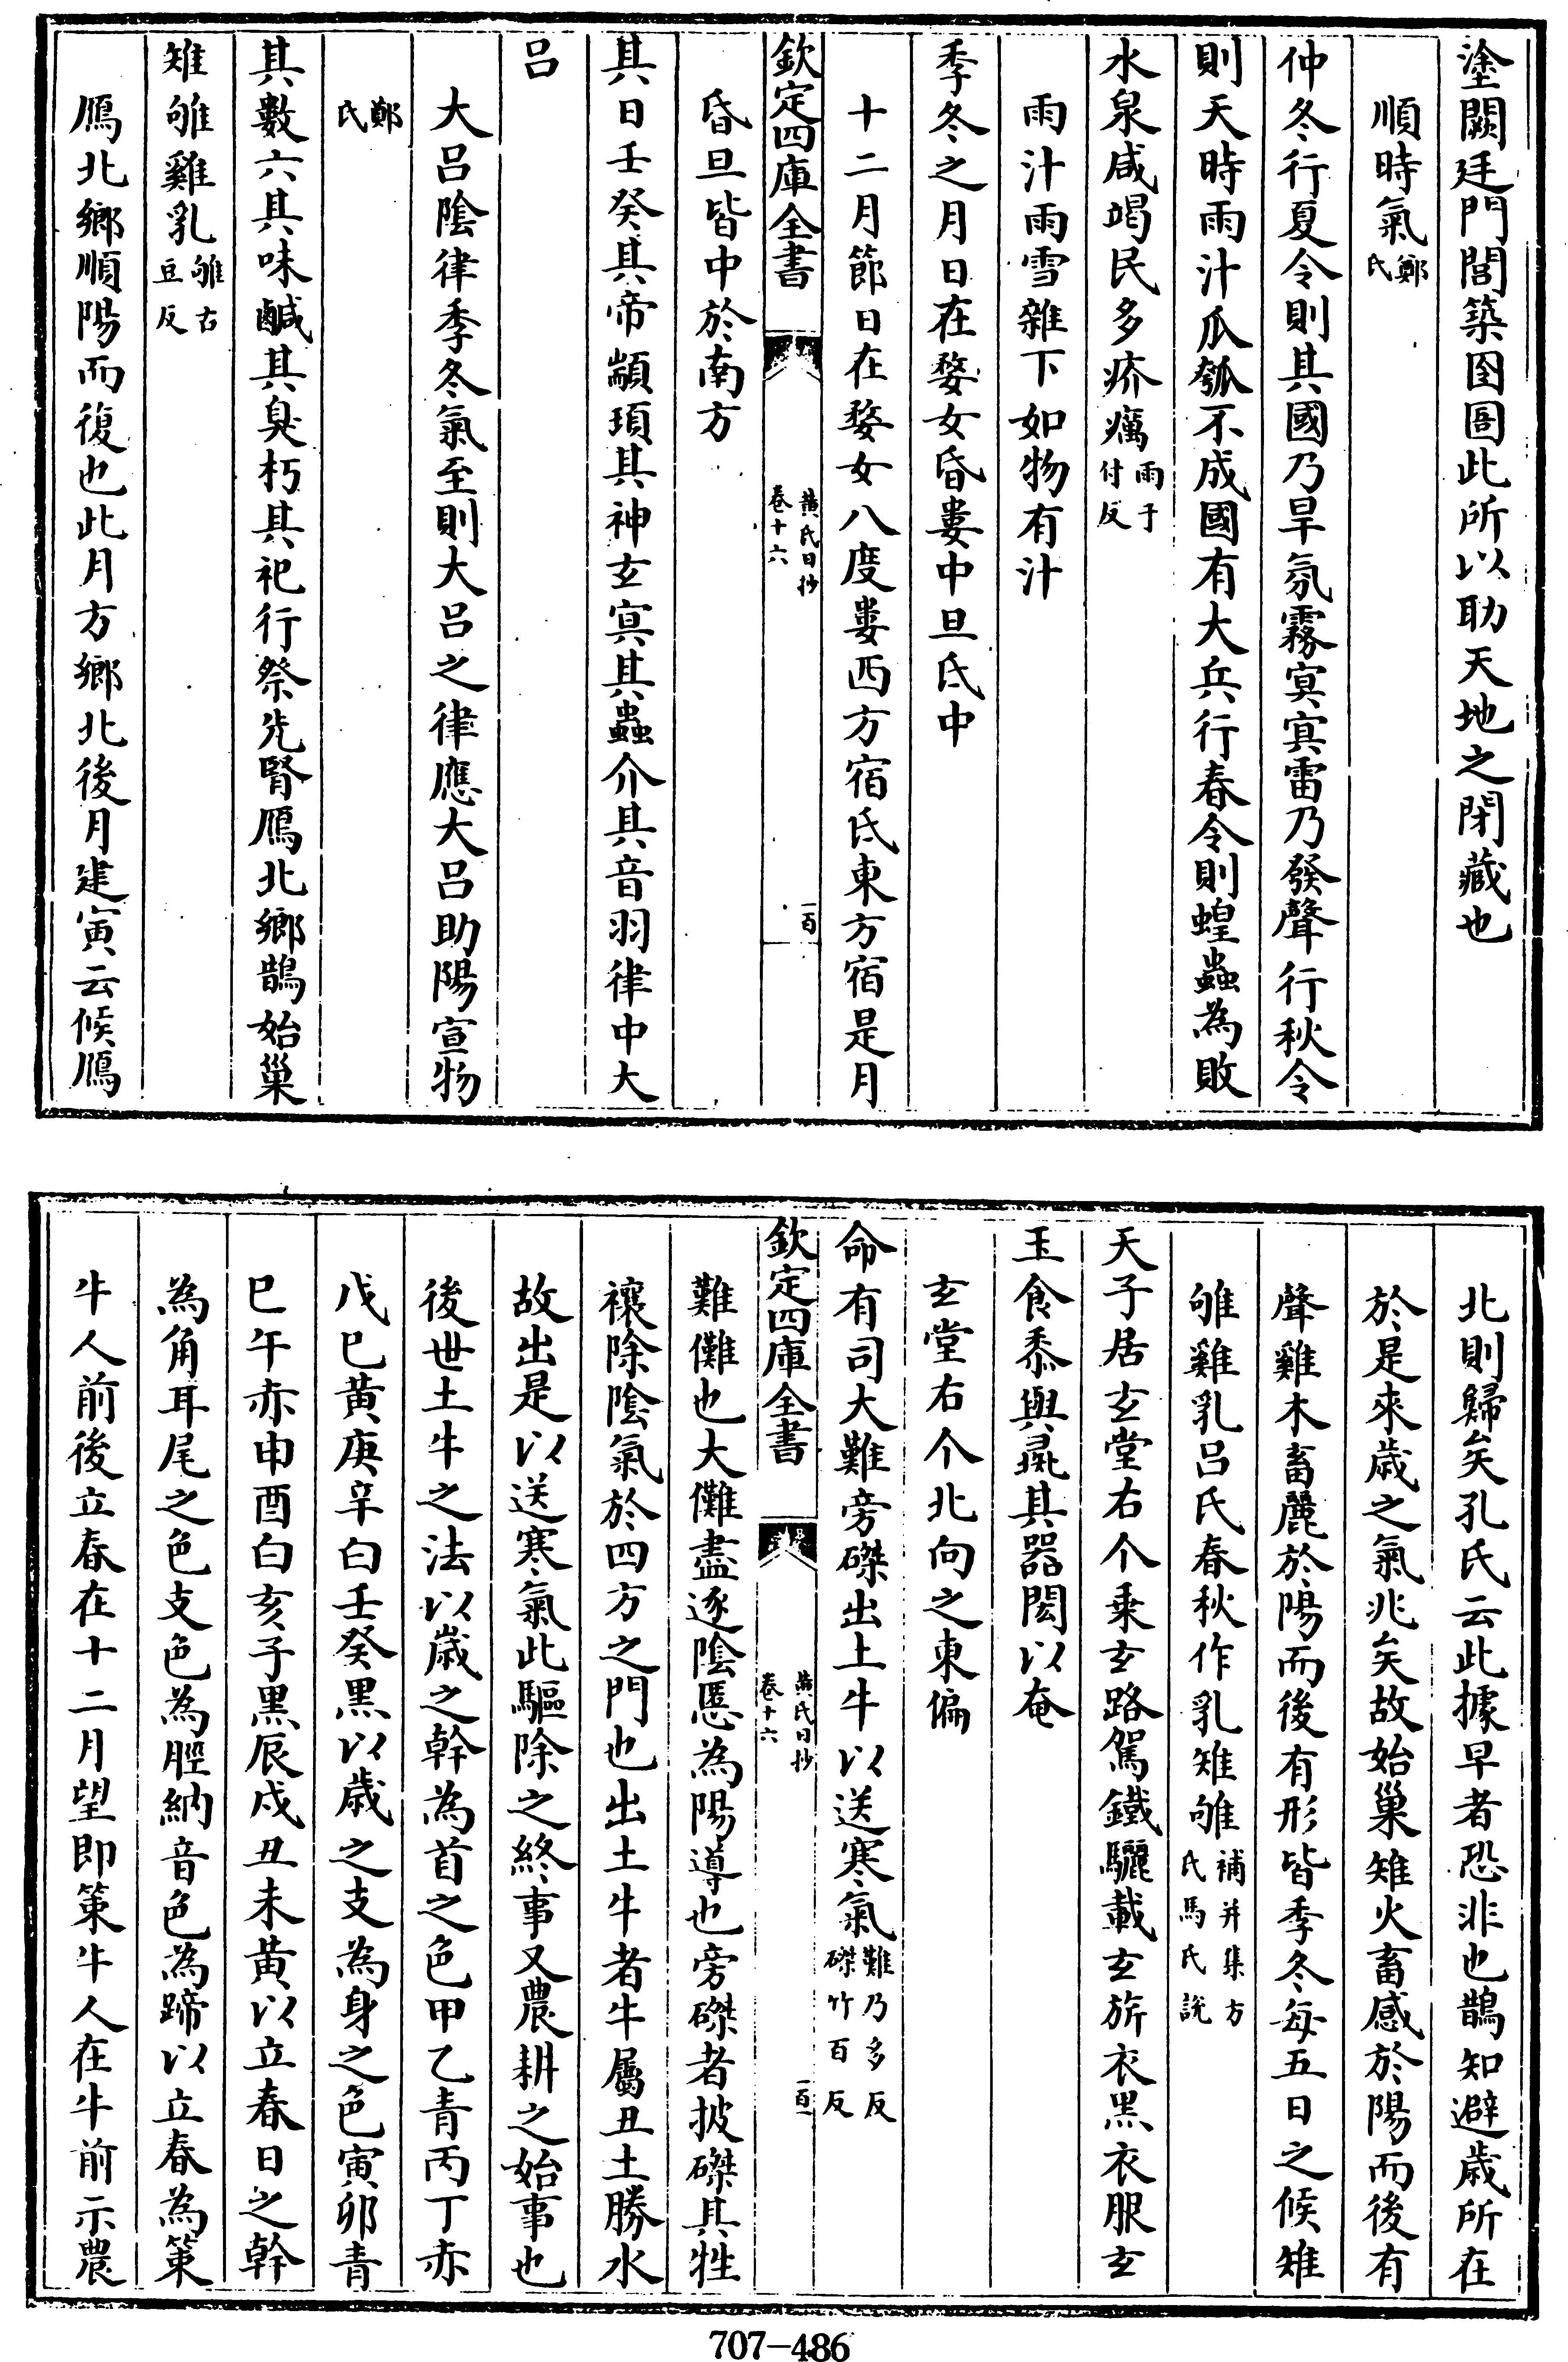 塗闕廷門閭築囹圄此所以助天地之閉藏也
順時氣鄭氏
仲冬行夏令則其國乃旱氛霧冥冥雷乃發聲行秋令
則天時雨汁瓜瓠不成國有大兵行春令則蝗蟲為敗
水泉咸竭民多疥癘雨于付反
雨汁雨雪雜下如物有汁
季冬之月日在婺女昏婁中旦氐中
十二月節日在婺女八度婁西方宿氐東方宿是月
欽定四庫全書
黃氏日抄
卷十六
一百
昏旦皆中於南方
其日壬癸其帝顓頊其神玄冥其蟲介其音羽律中大
呂
大呂陰律季冬氣至則大呂之律應大呂助陽宣物
鄭氏
其數六其味鹹其臭朽其祀行祭先腎鴈北鄉鵲始巢
雉雊雞乳雊古豆反
鴈北鄉順陽而復也此月方鄉北後月建寅云候鴈
北則歸矣孔氏云此據早者恐非也鵲知避歲所在
於是來歲之氣兆矣故始巢雉火畜感於陽而後有
聲雞木畜麗於陽而後有形皆季冬每五日之候雉
雊雞乳呂氏春秋作乳雉雊補并集方氏馬氏說
天子居玄堂右个乘玄路駕鐵驪載玄旂衣黑衣服玄
玉食黍與彘其器閎以奄
玄堂右个北向之東偏
命有司大難旁磔出土牛以送寒氣難乃多反磔竹百反
欽定四庫全書
黃氏日抄
卷十六
一百一
難儺也大儺盡逐陰慝為陽導也旁磔者披磔其牲
禳除陰氣於四方之門也出土牛者牛屬丑土勝水
故出是以送寒氣此驅除之終事又農耕之始事也
後世土牛之法以歲之幹為首之色甲乙青丙丁赤
戊巳黃庚辛白壬癸黑以歲之支為身之色寅卯青
巳午赤申酉白亥子黑辰戍丑未黃以立春日之幹
為角耳尾之色支色為脛納音色為蹄以立春為策
牛人前後立春在十二月望即策牛人在牛前示農
707-486